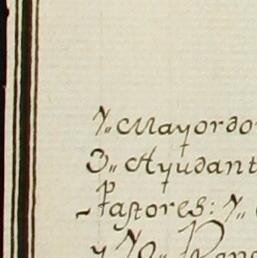 1,, Mayordo
3,, Ayudant
Pastores: 1,,
y 10,,